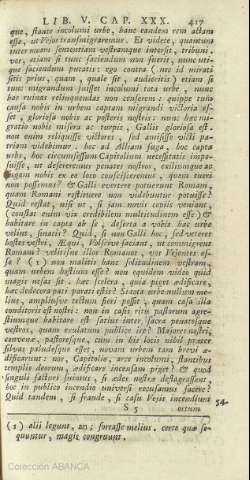 LIB. V. CAP. XXX. 417
que, stante incolumi urbe, hanc eandem rem actam
esse, ut Veios transmigraremus. Et videte, quantum
inter meam sententiam vestramque intersit, tribuni:
vos, etiam si tunc faciendum non fuerit, nunc uti-
que faciendum putatis: ego contra (nec id mirati
sitis prius, quam, quale sit, audieritis) etiam si
tunc migrandum fuisset incolumi tota urbe, nunc
has ruinas relinquendas non censerem: quippe tum
causa nobis in urbem captam migrandi victoria es-
set, gloriosa nobis ac posteris nostris: nunc hæc mi-
gratio nobis misera ac turpis, Gallis gloriosa est.
non enim reliquisse victores, sed amisisse victi pa-
triam videbimur. hoc ad Alliam fuga, hoc capta
urbs, hoc circumsessum Capitolium necessitatis impo-
suisse, ut desereremus penates nostros, exiliumque ac
fugam nobis ex eo loco conscisceremus, quem tueri
non possemus? & Galli evertere potuerunt Romam,
quam Romani restituere non videbuntur potuisse?
Quid restat, nisi ut, si jam novis copiis veniant,
(constat enim vix credibilem multitudinem esse) &
habitare in capta ab se, deserta a vobis hac urbe
velint, sinatis? Quid, si non Galli hoc, sed veteres
hostes vestri, Æqui, Volscive faciant, ut commigrent
Romam? velitisne illos Romanos, vos Vejentes es-
se? (1) non malitis hanc solitudinem vestram,
quam urbem hostium esse? non equidem video quid
magis nefas sit. hæc scelera, quia piget ædificare,
hæc dedecora pati parati estis? Si tota urbe nullum me-
lius, ampliusve tectum fieri possit, quam casa illa
conditoris est nostri: non in casis ritu pastorum agre-
stiumque habitare est satius inter sacra penatesque
vestros, quam exulatum publice ire? Majores nostri,
convenæ, pastoresque, cum in his locis nihil præter
silvas paludesque esset, novam urbem tam brevi æ-
dificarunt: nos, Capitolio, arce incolumi, stantibus
templis deorum, ædificare incensam piget? & quod
singuli facturi fuimus, si ædes nostræ deflagrassent,
hoc in publico incendio universi recusamus facere?
Quid tandem, si fraude, si casu Veiis incendium 54.
S 5 ortum
(1) alii legunt, an; fortasse melius, certe quæ se-
quuntur, magis congruunt.
Colección ABANCA